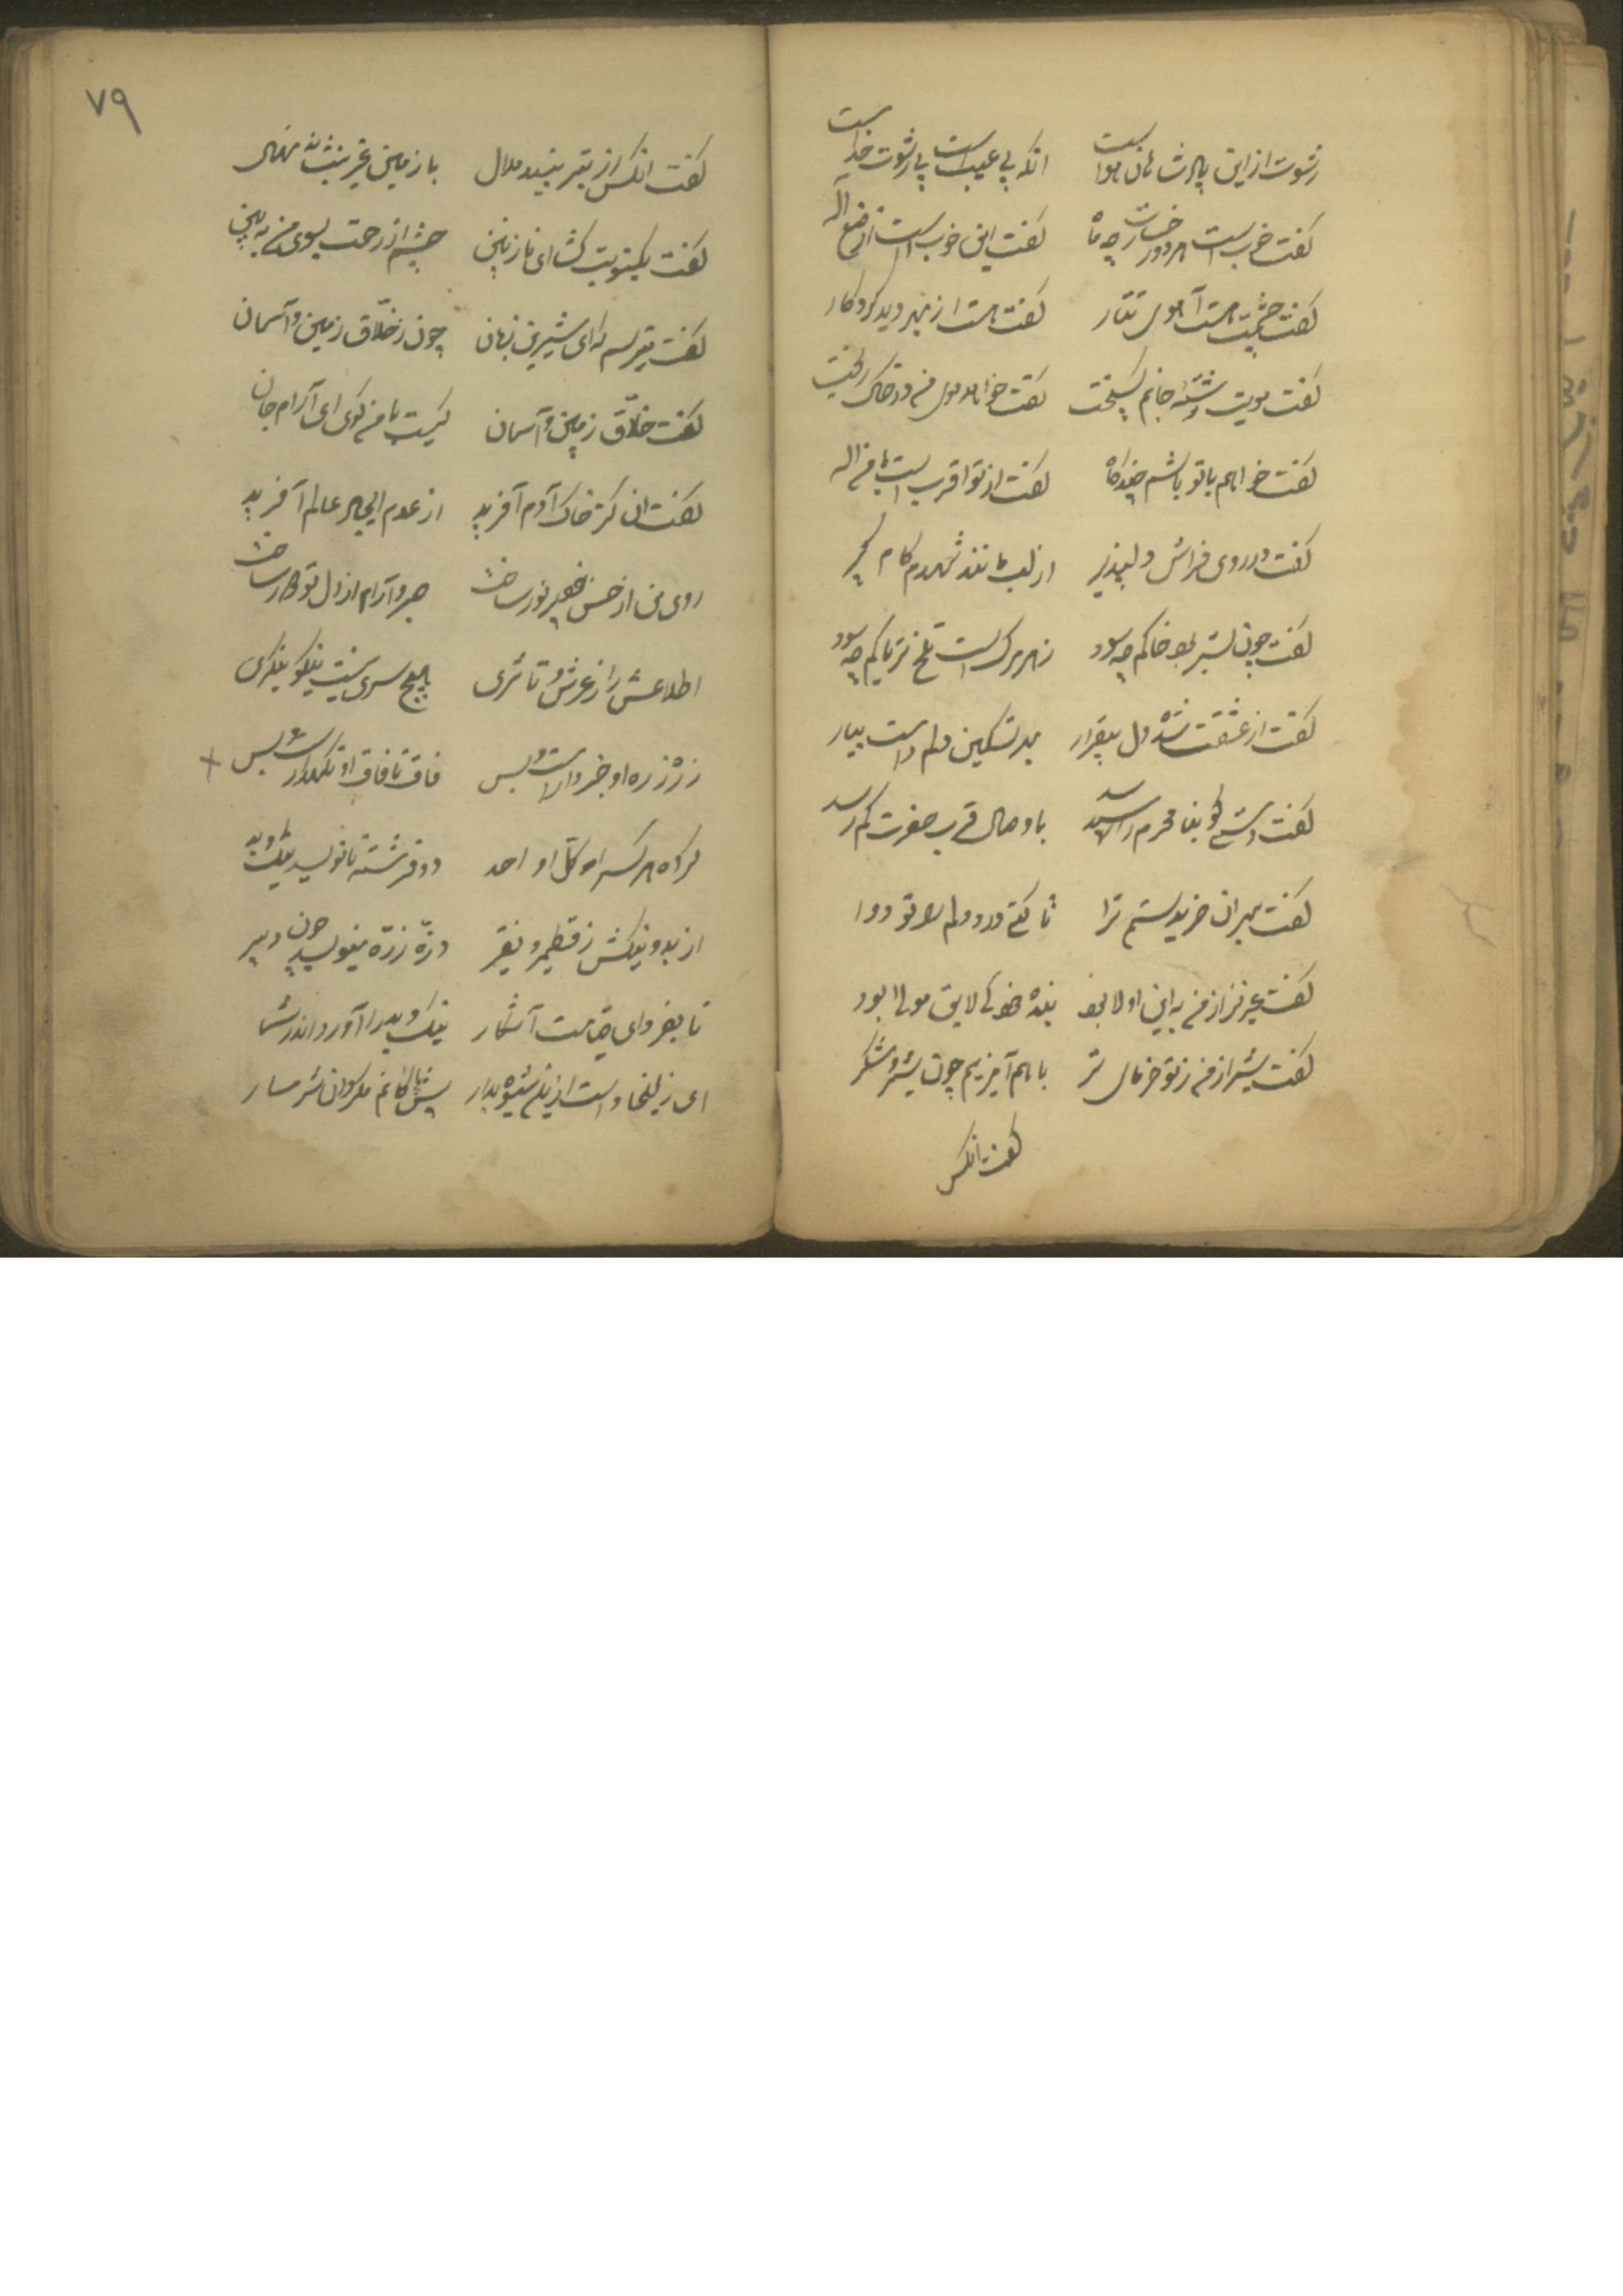 رشوت از این پادشاهان هواست انکه بی عیب است بی رشوت خداست
کفت خوب است هر دو رخسارت چه ماه کفت این خوب است از صنع اله
کفت چشمت هست آهوی تتار کفت هست از بهر دید کردکار
کفت مویت رشته جانم کسیخت کفت خواهد موی من در خاک ریخت
کفت خواهم با تو باشم چندکاه کفت از تو اقرب است با من اله
کفت در روی فراش دلپذیر از لب مانند شهدم کام کیر
کفت چون بستر بود خاکم چه سود زهر مرک است تلخ تریاکم چه سود
کفت از عشقت شده دل بیقرار بهر تسکین دلم دست بیار
کفت دستی کو بنا محرم رسید با وصال قرب حضرت کم رسد
کفت بهر آن خریدستم ترا تا کنی درد دلم را تو دوا
کفت عزیز از من به این اولا بود بنده خود کی لایق مولا بود
کفت شیر از من ز تو خرمای تر با هم آمیزیم چون شیر و شکر
کفت انکس
۷۹
کفت انکس از
کفت یکنوبت کشا ای نازنین چشم از رحمت بسوی من به بین
کفت میترسم که ای شیرین زبان چون ز خلّاق زمین و آسمان
کفت خلّاق زمین و آسمان کیست با من کوی ای آرام جان
کفت ان کز خاک آدم آفرید از عدم ایجاد عالم آفرید
روی من از حسن خود پر نور ساخت صبر و آرام از دل تو دور ساخت
اطلاعش را ز عرش و تا ثری هیچ سری نیست نیکو بنکری
ذره ذره او خبردار است و بس قاف تا قاف او نکهدار است بس
کرده هر کس را موکل او احد دو فرشته تا نویسد نیک و بد
از بد و نیکش ز قطمیر و نقیر ذرّه ذرّه مینویسد چون دبیر
تا بفردای قیامت آشکار نیک و بد را آورد اندر شمار
ای زلیخا دست از این شیوه بدار پیش مکردان شرمسار